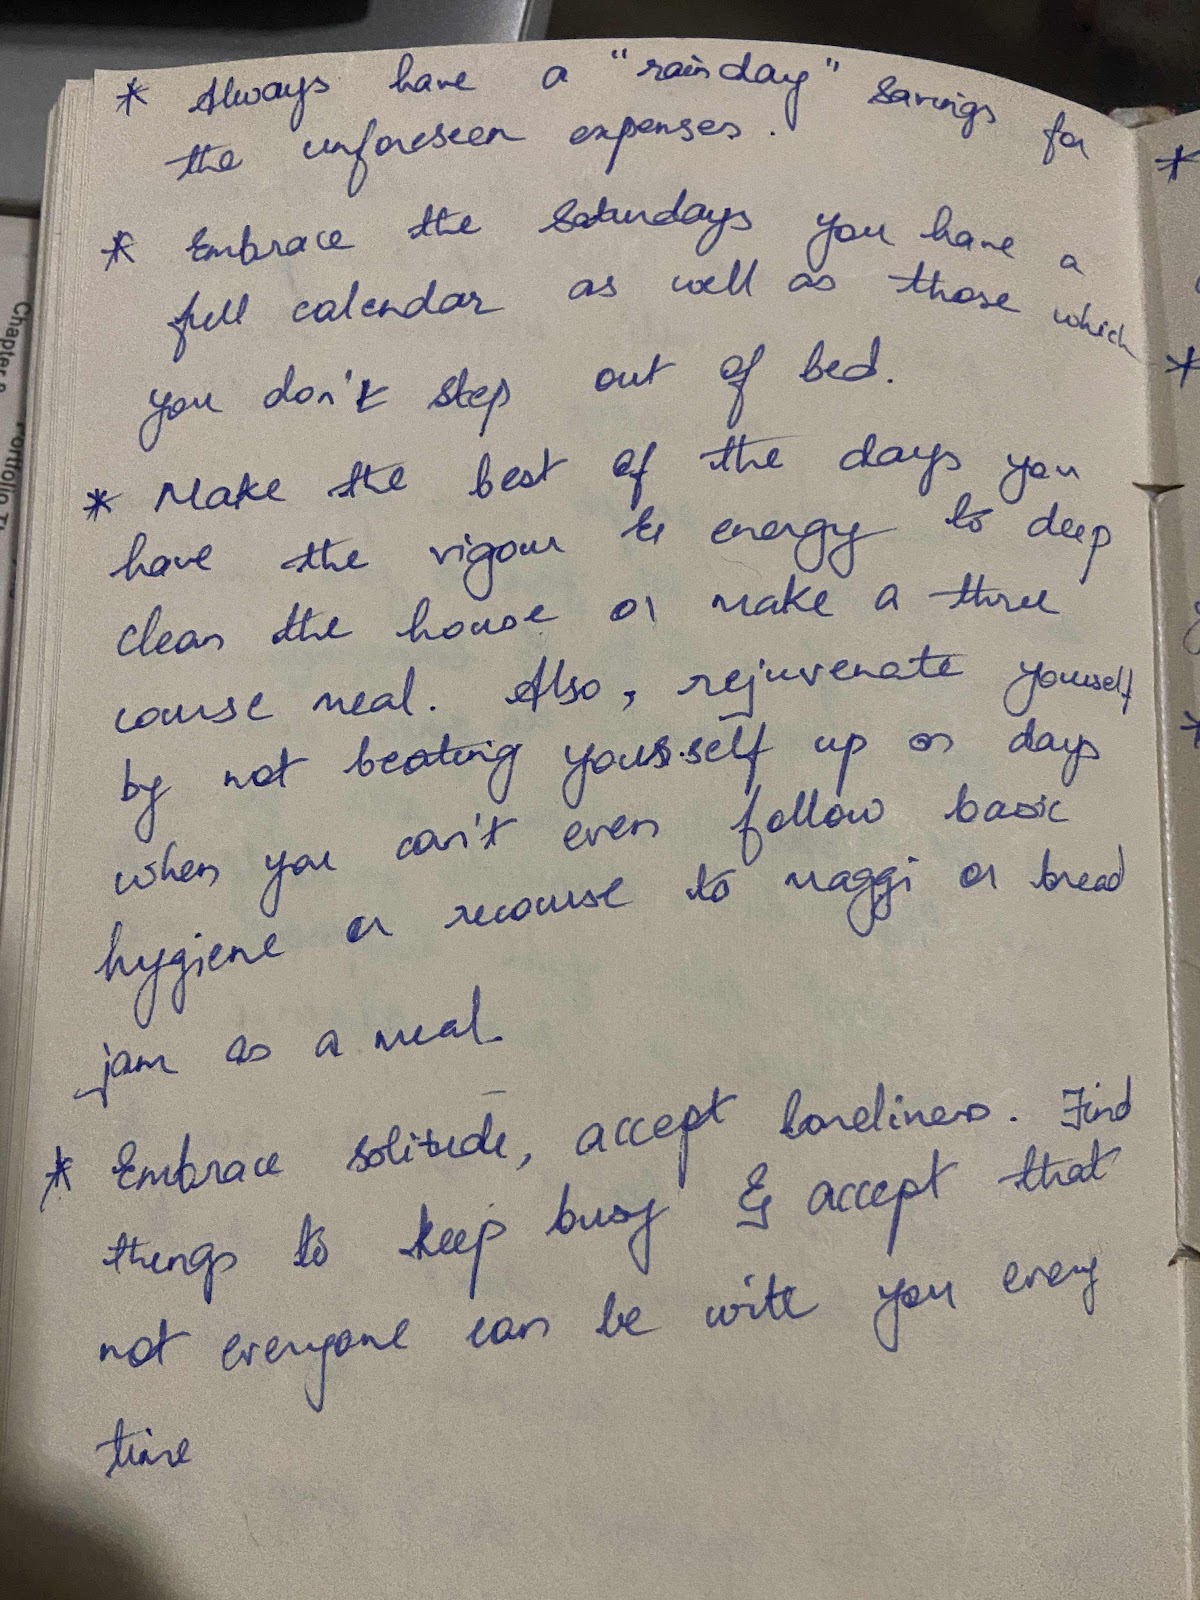 * Always have a "rainday" savings for
the unforeseen expenses.
* Embrace the Saturdays you have a
full calendar as well as those which
you don't step out of bed.
* Make the best of the days you
have the vigour & energy to deep
clean the house or make a three
course meal. Also, rejuvenate yourself
by not beating yourself up on days
when you can't even follow basic
hygiene or recourse to maggi or bread
jam as a meal.
* Embrace solitude, accept loneliness. Find
things to keep busy & accept that
not everyone can be with you every
time
Chapter
Portfolio